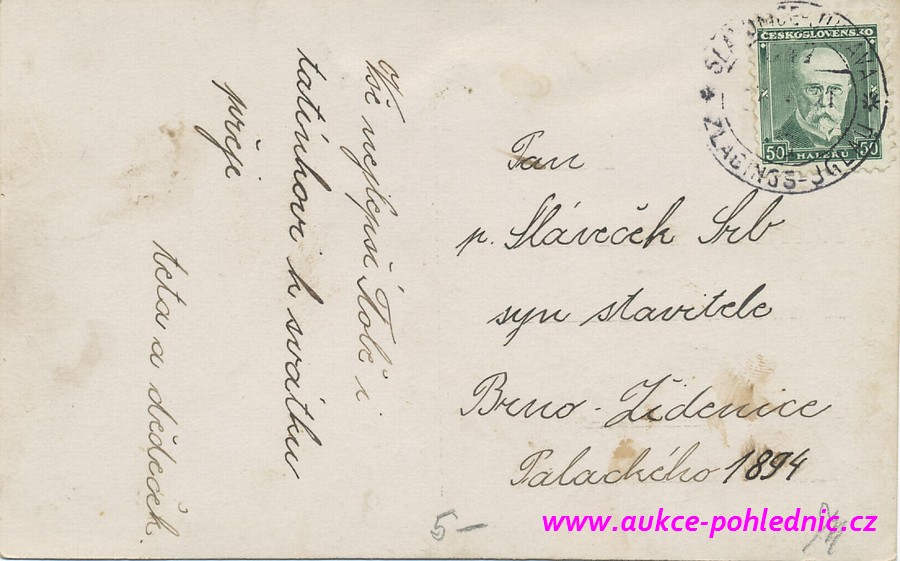 Vše nejlepší Tobě i
tatínkovi k svátku
přeje
teta a dědeček.
ČESKOSLOVENSKO
50 HALÉŘŮ 50
ZLABINGS-IGLAU
Pan
p. Sláveček Srb
syn stavitele
Brno-Židenice
Palackého 1894
5-
www.aukce-pohlednic.cz